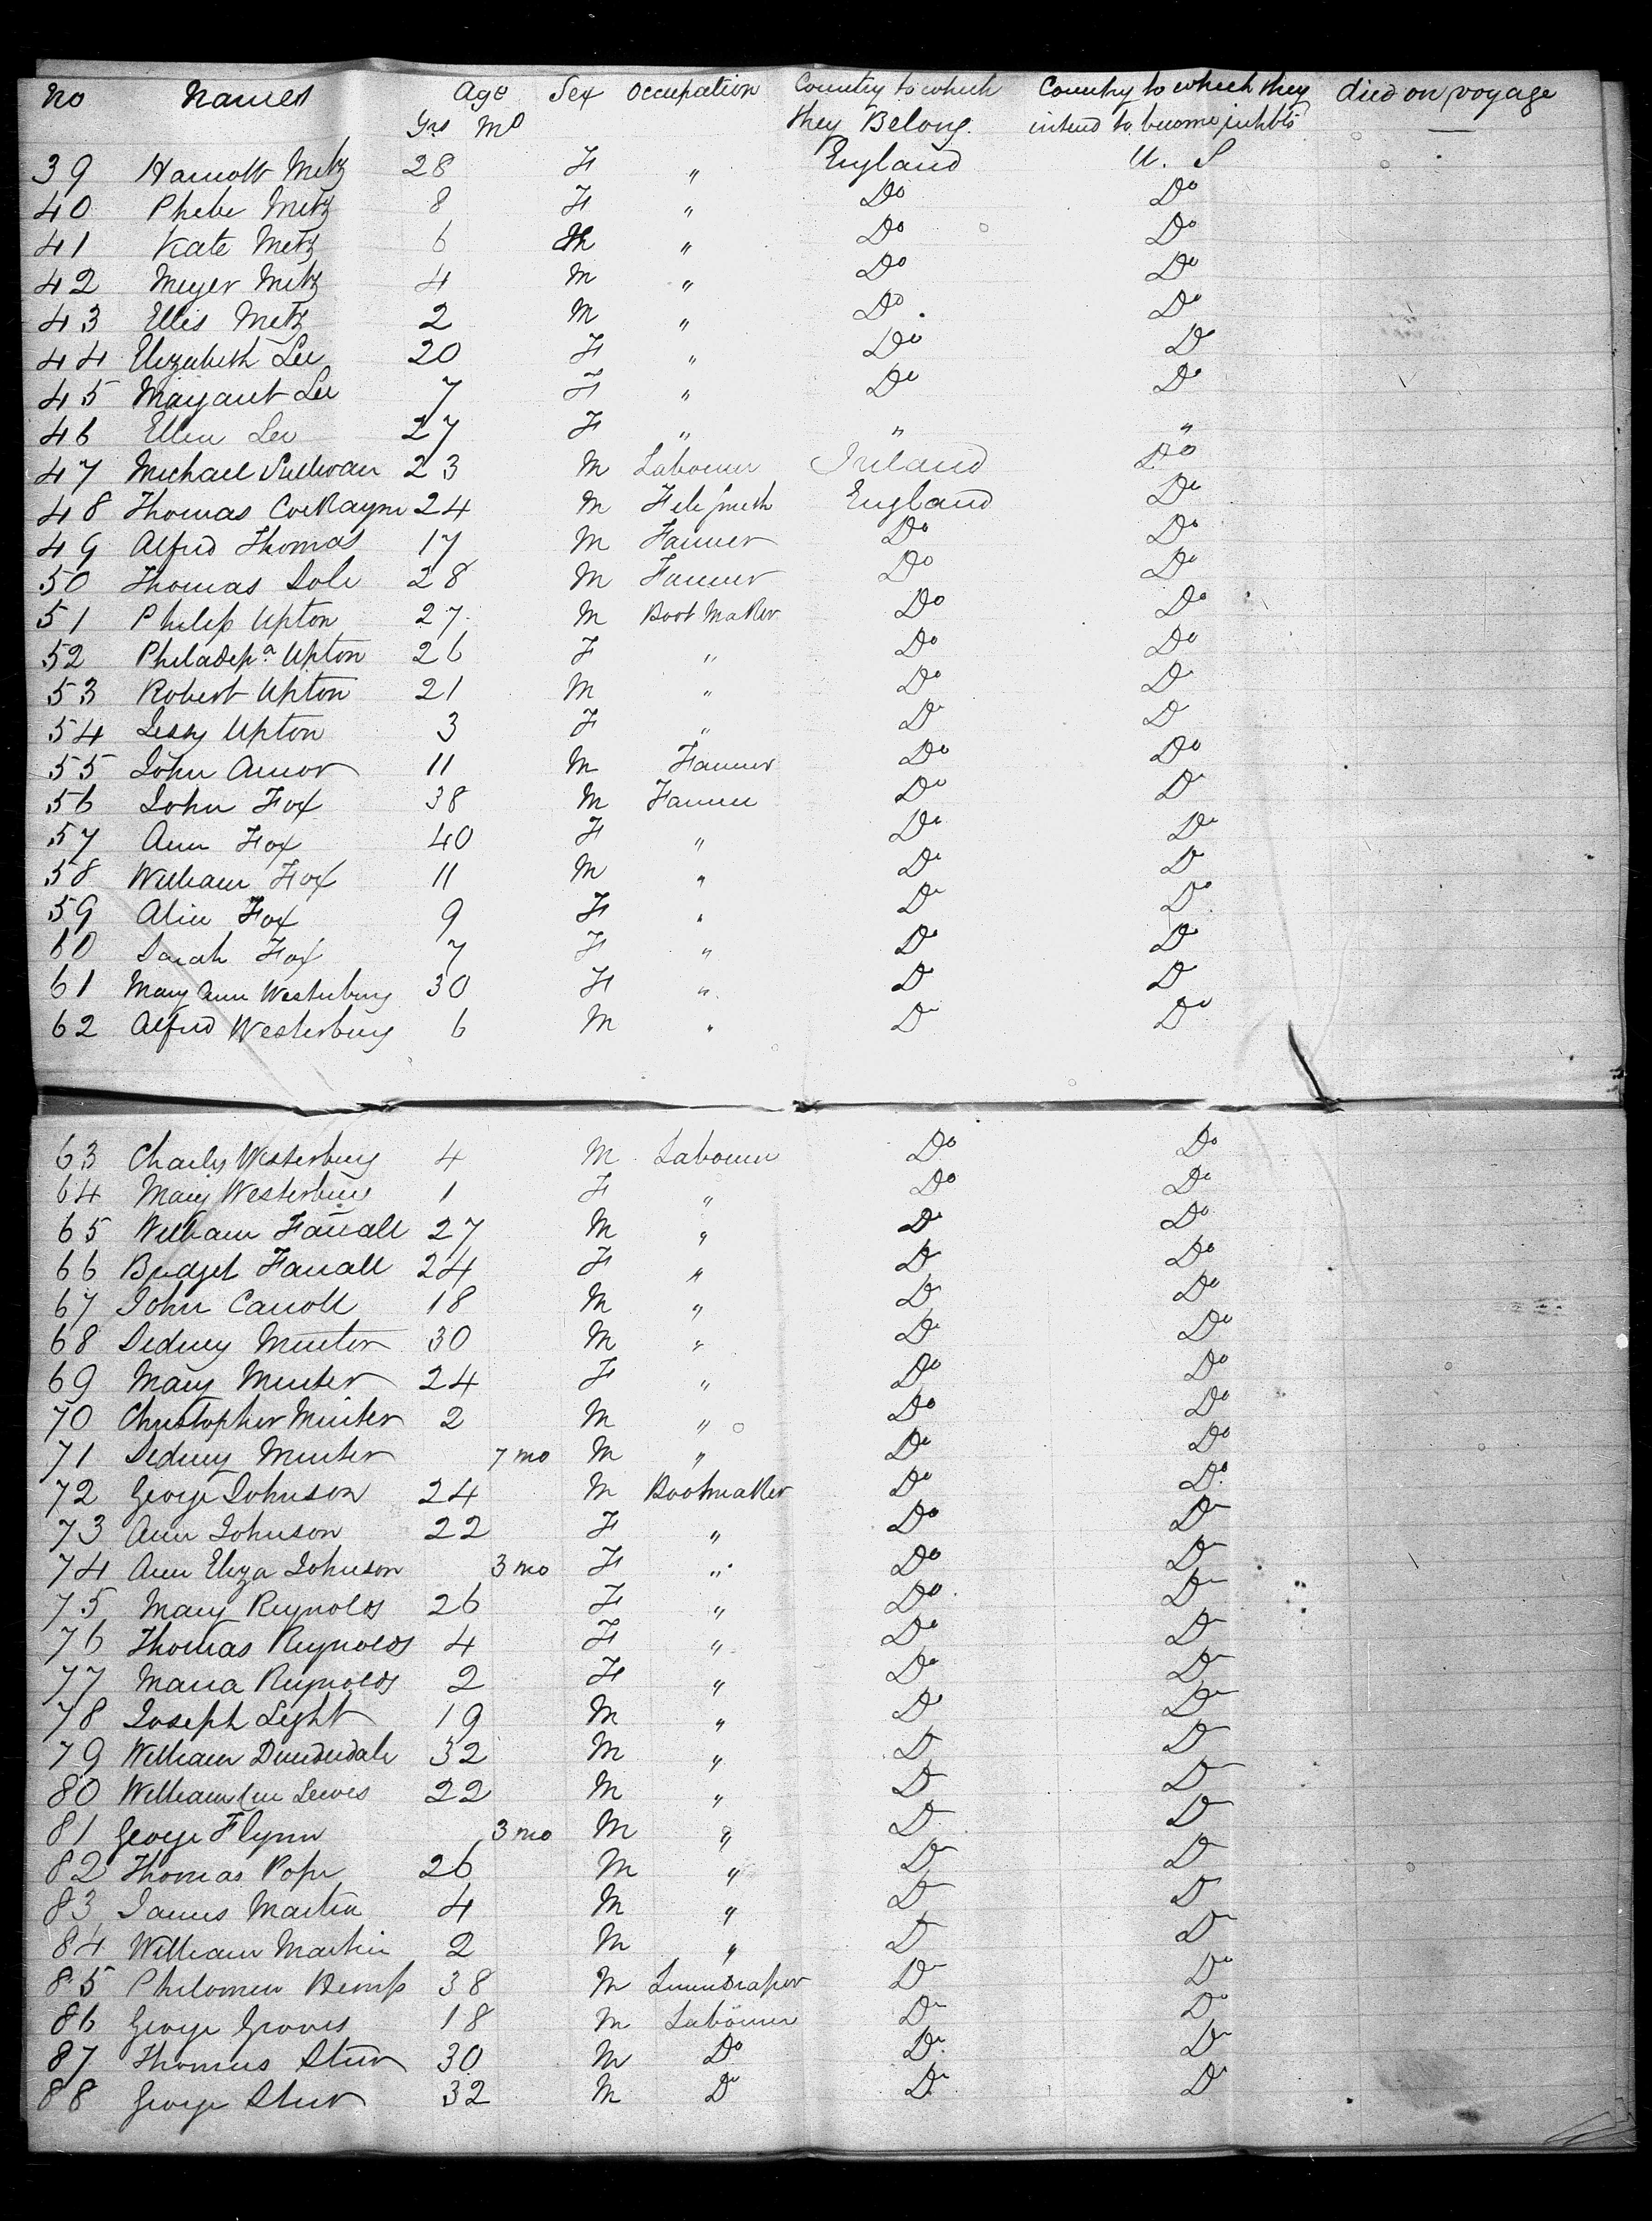 No Names Age Sex Occupation Country to which Country to which they died on voyage
Yrs Mo they Belong. intend to become inhbts
39 Harriott Metz 28 F " England U. S
40 Phebe Metz 8 F " Do Do
41 Kate Metz 6 " Do Do
42 Meyer Metz 4 M " Do Do
43 Ellis Metz 2 M " Do Do
44 Elizabeth Lee 20 F " Do Do
45 Margaret Lee 7 F " Do Do
46 Ellen Lee 27 F " " "
47 Michael Sullivan 23 M Labourer Ireland Do
48 Thomas 24 M File Smith England Do
49 Alfred Thomas 17 M Farmer Do Do
50 Thomas Dole 28 M Farmer Do Do
51 Philip Upton 27 M Boot Maker Do Do
52 Philadepa Upton 26 F " Do Do
53 Robert Upton 21 M " Do Do
54 Jessy Upton 3 F " Do Do
55 John Amor 11 M Farmer Do Do
56 John Fox 38 M Farmer Do Do
57 Ann Fox 40 F " Do Do
58 William Fox 11 M " Do Do
59 Alice Fox 9 F " Do Do
60 Sarah Fox 7 F " Do Do
61 Mary Ann Westerbury 30 F " Do Do
62 Alfred Westerbury 6 M " Do Do
63 Charly Westerbury 4 M Labourer Do Do
64 Mary Westerbury 1 F " Do Do
65 William Farrall 27 M " Do Do
66 Bridget Farrall 24 F " Do Do
67 John Carroll 18 M " Do Do
68 Sedney Minter 30 M " Do Do
69 Mary Minter 24 F " Do Do
70 Christopher Minter 2 M " Do Do
71 Sedney Minter 7 mo M " Do Do
72 George Johnson 24 M Bootmaker Do Do
73 Ann Johnson 22 F " Do Do
74 Ann Eliza Johnson 3 mo F " Do Do
75 Mary Reynolds 26 F " Do Do
76 Thomas Reynolds 4 F " Do Do
77 Maria Reynolds 2 F " Do Do
78 Joseph Light 19 M " Do Do
79 William Dunderdale 32 M " Do Do
80 William Lewes 22 M " Do Do
81 George Flynn 3 mo M " Do Do
82 Thomas Pope 26 M " Do Do
83 James Martin 4 M " Do Do
84 William Martin 2 M " Do Do
85 Philomen 38 M Linendraper Do Do
86 George Groves 18 M Labourer Do Do
87 Thomas Steer 30 M Do Do Do
88 George Steer 32 M Do Do Do